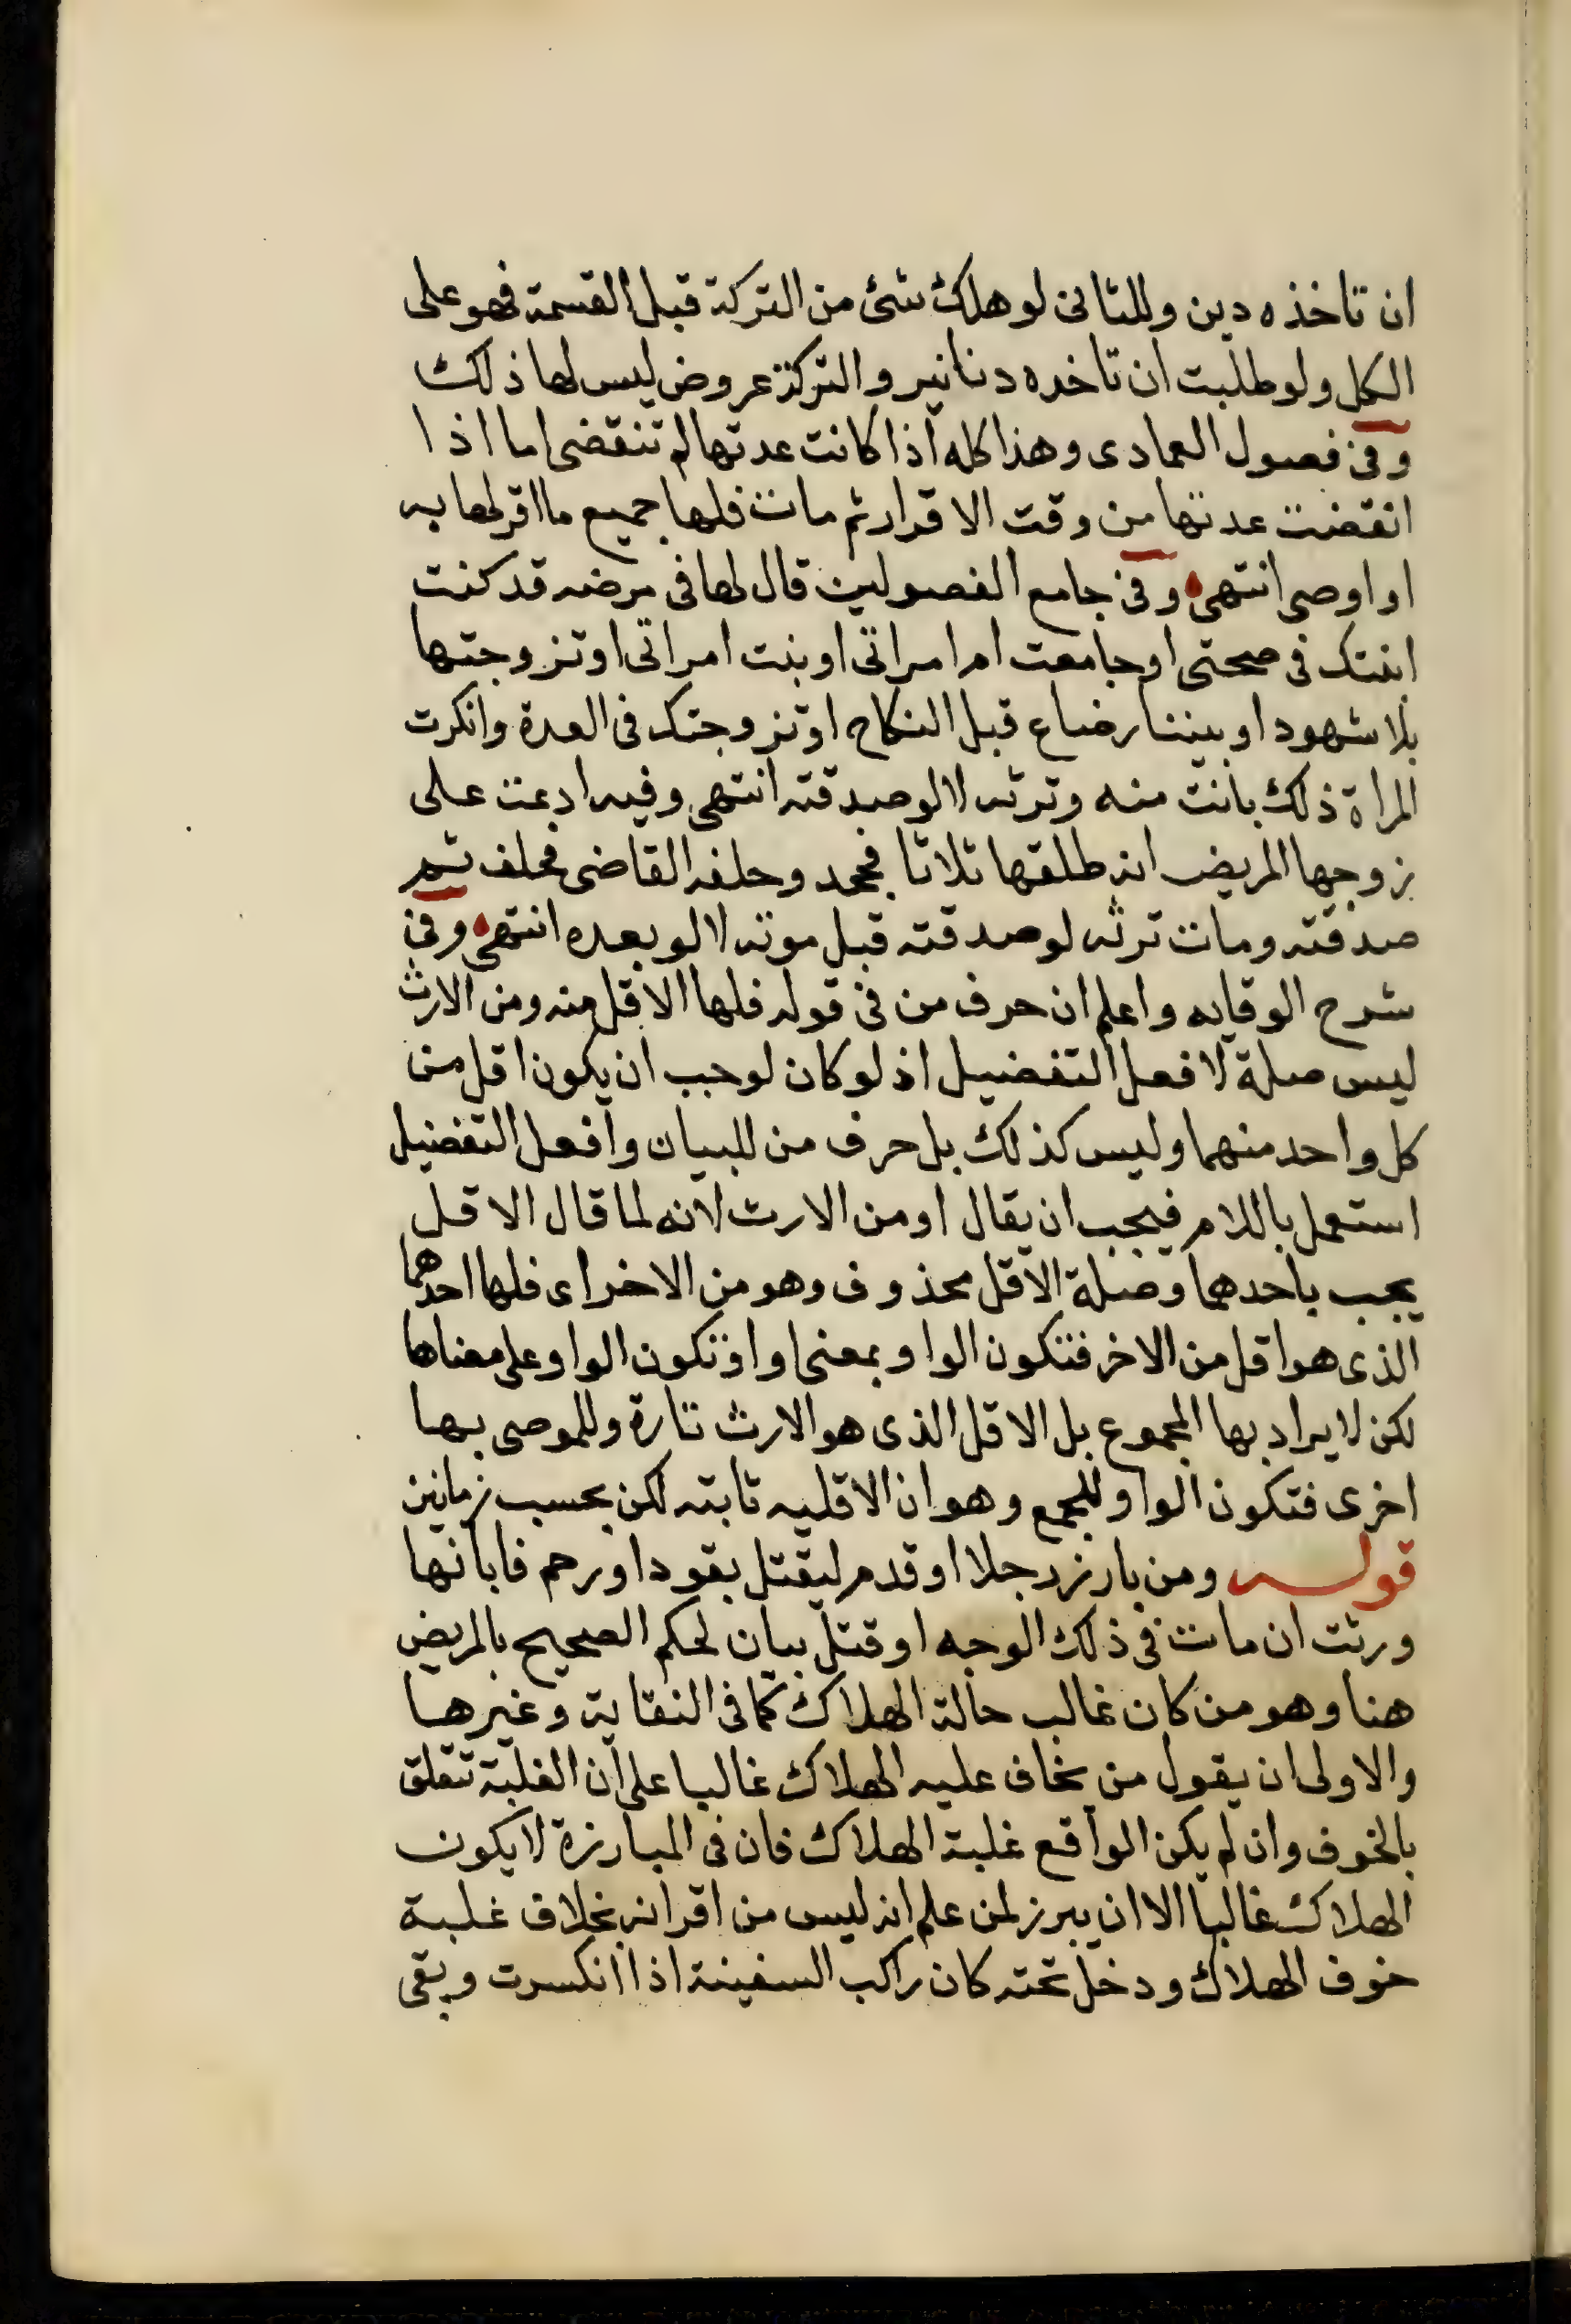 ان تاخذه دين وللثانى لو هلك شئ من التركة قبل القسمة فهو على
الكل ولو طلبت ان تاخده دنانير والتركة عروض ليس لها ذلك
وفى فصول العمادى وهذا كله اذا كانت عدتها لم تنقضى اما اذا
انقضت عدتها من وقت الاقرار ثم مات فلها جميع ما اقر لها به
او اوصى انتهى وفى جامع الفصولين قال لها فى مرضه قد كنت
ابنتك فى صحتى او جامعت ام امراتى او بنت امراتى او تزوجتها
بلا شهود او بيننا رضاع قبل النكاح او تزوجتك فى العدة وانكرت
المراة ذلك بانت منه وترثه لا لو صدقته انتهى وفيه ادعت على
زوجها المريض انه طلقها ثلاثا فجحد وحلفه القاضى فحلف ثم
صدقته ومات ترثه لو صدقته قبل موته لا لو بعده انتهى وفى
شرح الوقايه واعلم ان حرف من فى قوله فلها الاقل منه ومن الارث
ليس صلة لافعل التفضيل اذ لو كان لوجب ان يكون اقل من
كل واحد منهما وليس كذلك بل حرف من للبيان وافعل التفضيل
استعمل باللام فيجب ان يقال او من الارث لانه لما قال الاقل
يجب باحدهما وصلة الاقل محذوف وهو من الاخر اى فلها احدهما
الذى هو اقل من الاخر فتكون الواو بمعنى او او تكون الواو على معناها
لكن لا يراد بها المجموع بل الاقل الذى هو الارث تارة وللموصى بها
اخرى فتكون الواو للجمع وهو ان الاقليه ثابته لكن بحسب زمانين
قوله ومن بارز رجلا او قدم ليقتل بقود او رجم فابانها
ورثت ان مات فى ذلك الوجه او قتل بيان لحكم الصحيح بالمريض
هنا وهو من كان غالب حالة الهلاك كما فى النقاية وغيرها
والاولى ان يقول من يخاف عليه الهلاك غالبا على ان الغلبة تتعلق
بالخوف وان لم يكن الواقع غلبة الهلاك فان فى المبارزة لا يكون
الهلاك غالبا الا ان يبرز لمن علم انه ليس من اقرانه بخلاف غلبة
خوف الهلاك ودخل تحته كان راكب السفينة اذا انكسرت وبقى